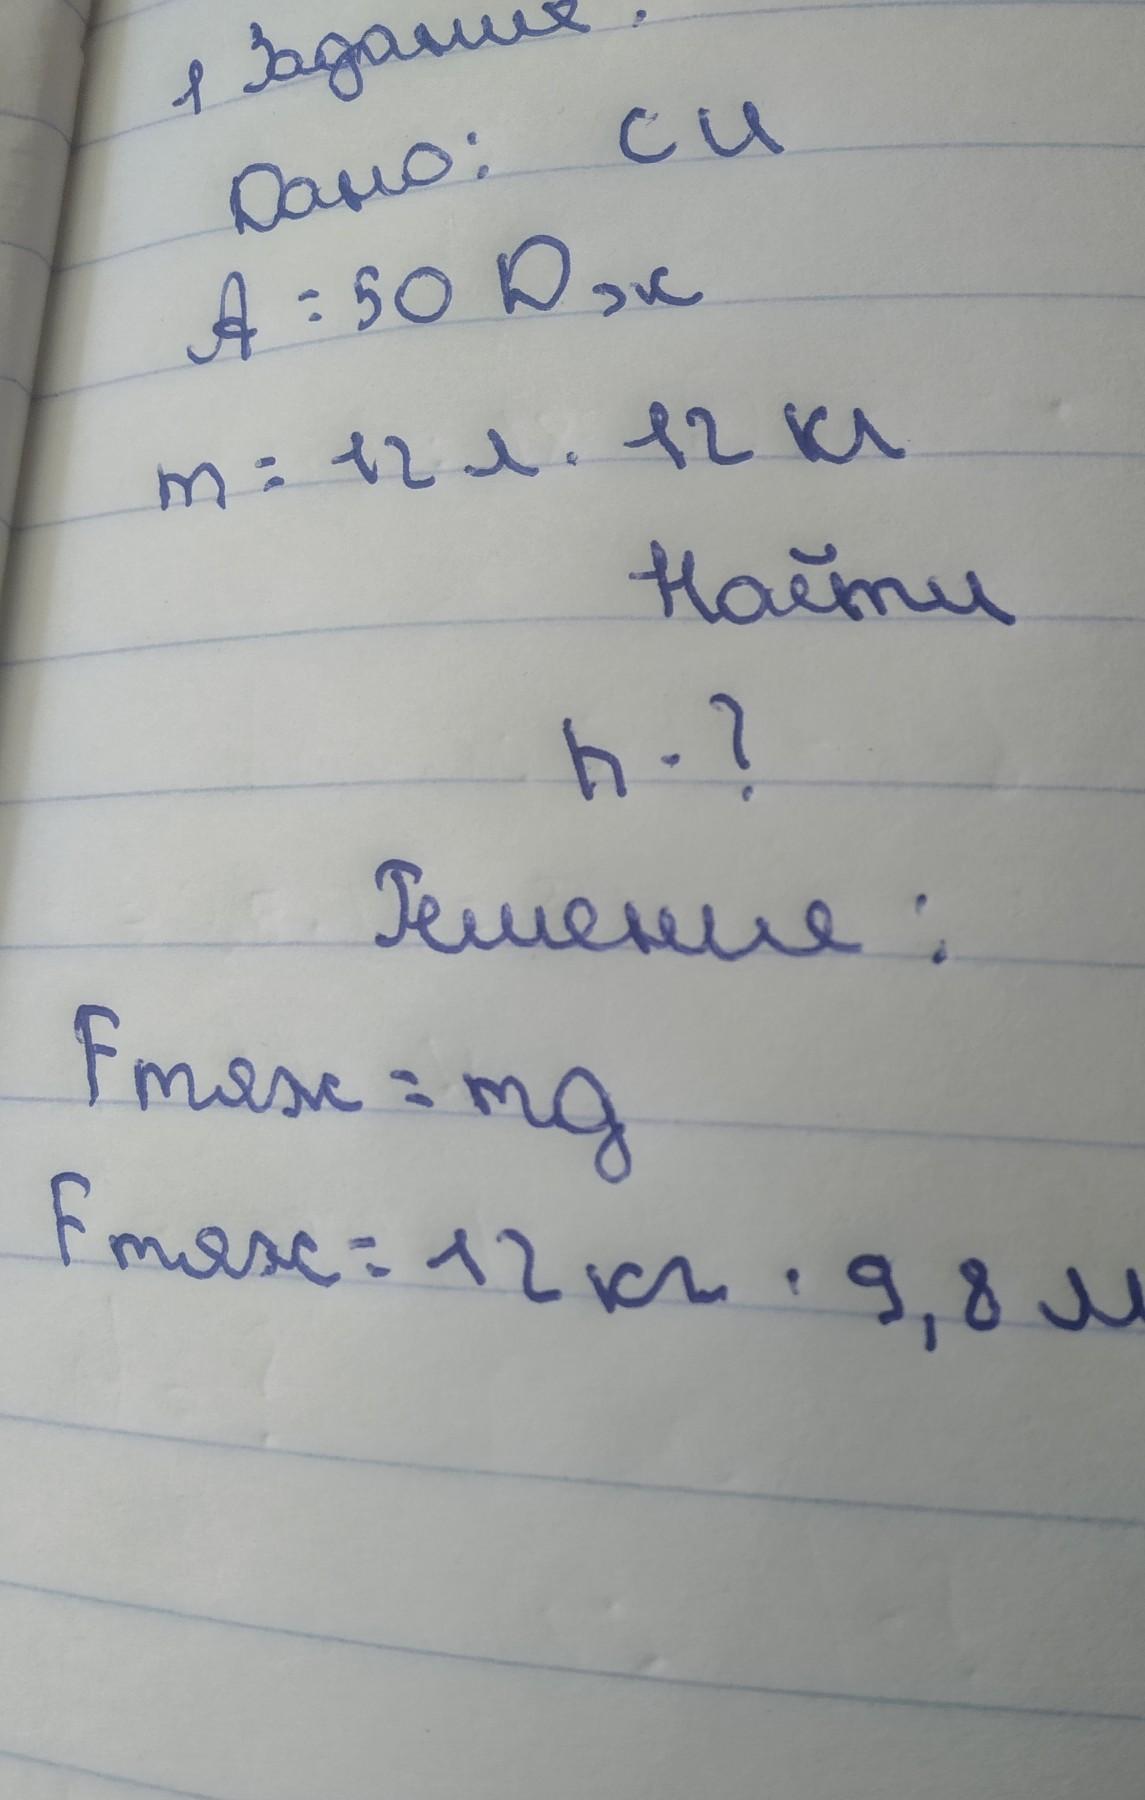 1 Задание.
Дано: СИ
A = 50 Дж
m = 12 л. 12 кг
Найти
h - ?
Решение:
Fтяж = mg
Fтяж = 12 кг · 9,8 м